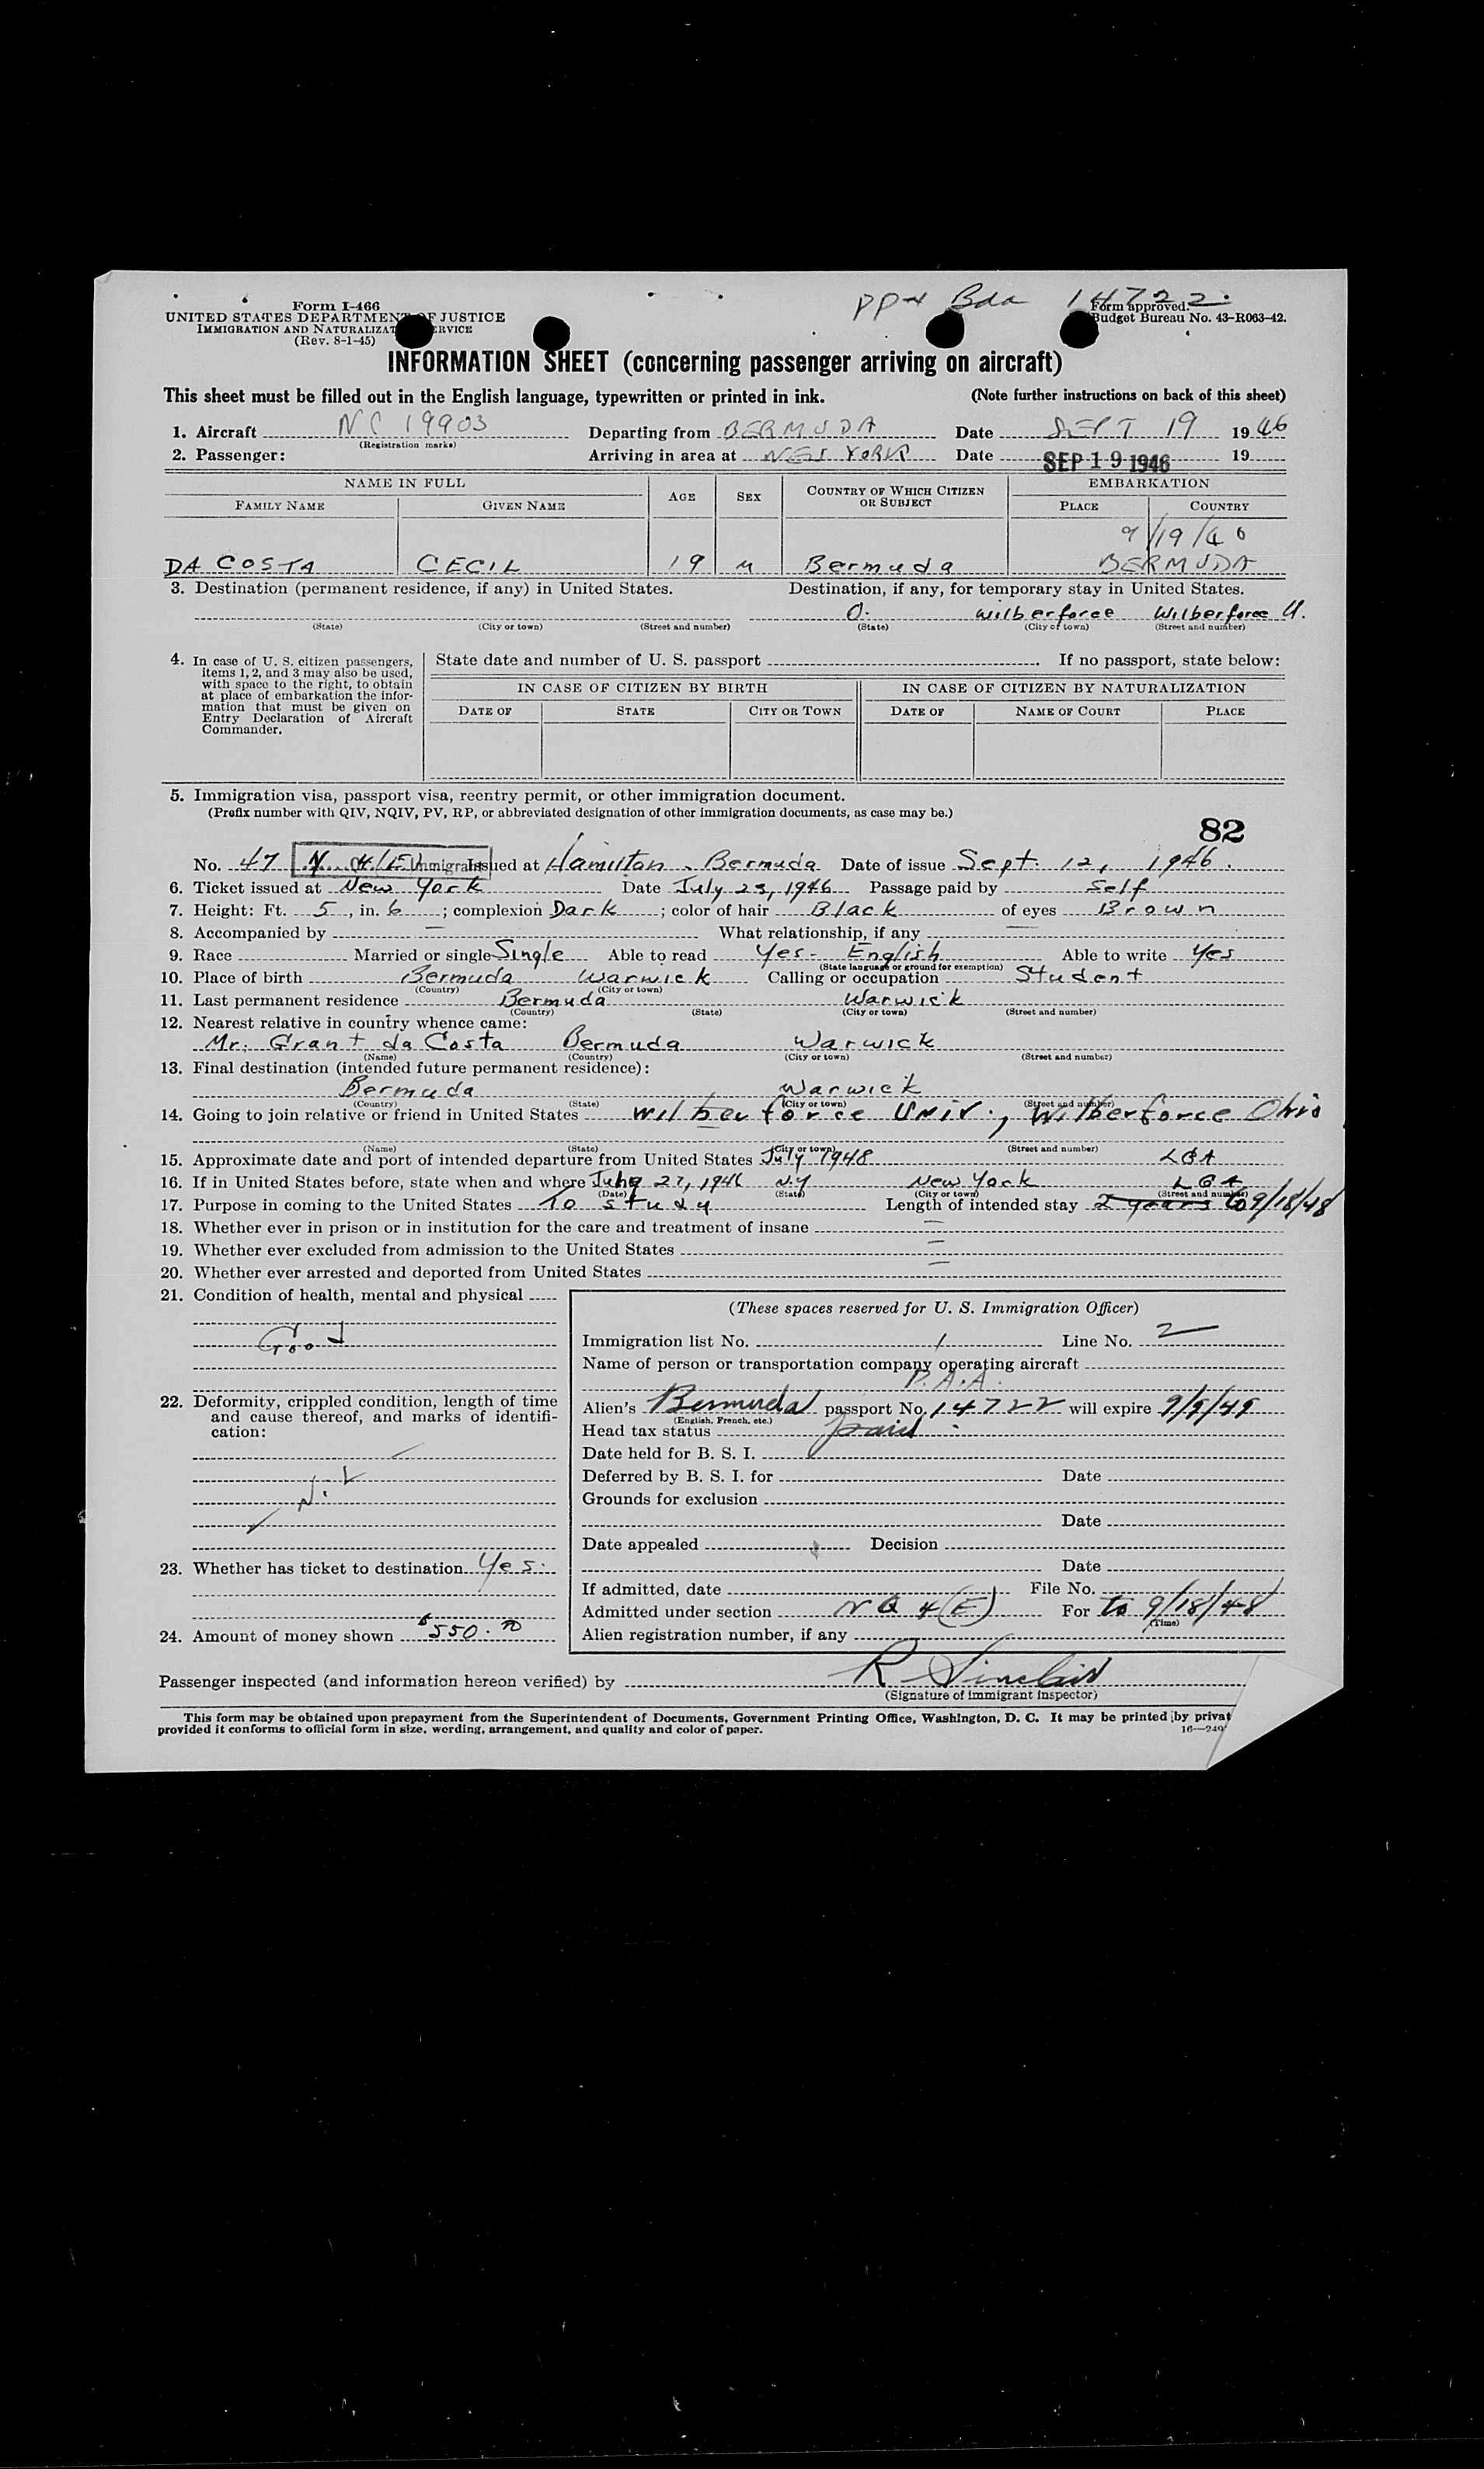 PPt Bda 14722.
Form I-466
UNITED STATES DEPARTMENT OF JUSTICE
IMMIGRATION AND NATURALIZAT ERVICE
(Rev. 8-1-45)
Form approved.
Budget Bureau No. 43-R063-42.
INFORMATION SHEET (concerning passenger arriving on aircraft)
This sheet must be filled out in the English language, typewritten or printed in ink. (Note further instructions on back of this sheet)
1. Aircraft NC 19903 Departing from BERMUDA Date SEPT 19 1946
(Registration marks)
2. Passenger: Arriving in area at NEW YORK Date SEP 19 1946 19
NAME IN FULL AGE SEX COUNTRY OF WHICH CITIZEN OR SUBJECT EMBARKATION
FAMILY NAME GIVEN NAME PLACE COUNTRY
9/19/46
DA COSTA CECIL 19 M Bermuda BERMUDA
3. Destination (permanent residence, if any) in United States. Destination, if any, for temporary stay in United States.
O. Wilberforce Wilberforce U.
(State) (City or town) (Street and number) (State) (City or town) (Street and number)
4. In case of U. S. citizen passengers, items 1, 2, and 3 may also be used, with space to the right, to obtain at place of embarkation the information that must be given on Entry Declaration of Aircraft Commander.
State date and number of U. S. passport . If no passport, state below:
IN CASE OF CITIZEN BY BIRTH IN CASE OF CITIZEN BY NATURALIZATION
DATE OF STATE CITY OR TOWN DATE OF NAME OF COURT PLACE
5. Immigration visa, passport visa, reentry permit, or other immigration document.
(Prefix number with QIV, NQIV, PV, RP, or abbreviated designation of other immigration documents, as case may be.)
82
No. 47 Issued at Hamilton, Bermuda Date of issue Sept. 12, 1946.
6. Ticket issued at New York Date July 23, 1946 Passage paid by Self
7. Height: Ft. 5, in. 6; complexion Dark; color of hair Black of eyes Brown
8. Accompanied by — What relationship, if any —
9. Race Married or single Single Able to read Yes - English Able to write Yes
(State language or ground for exemption)
10. Place of birth Bermuda Warwick Calling or occupation Student
(Country) (City or town)
11. Last permanent residence Bermuda Warwick
(Country) (State) (City or town) (Street and number)
12. Nearest relative in country whence came:
Mr. Grant da Costa Bermuda Warwick
(Name) (Country) (City or town) (Street and number)
13. Final destination (intended future permanent residence):
Bermuda Warwick
(Country) (State) (City or town) (Street and number)
14. Going to join relative or friend in United States Wilberforce Univ., Wilberforce Ohio
(Name) (State) (City or town) (Street and number)
15. Approximate date and port of intended departure from United States July 1948 LGA
16. If in United States before, state when and where 27, 1946 N.Y New York LGA
(Date) (State) (City or town) (Street and number)
17. Purpose in coming to the United States To study Length of intended stay 2 years to 9/18/48
18. Whether ever in prison or in institution for the care and treatment of insane —
19. Whether ever excluded from admission to the United States —
20. Whether ever arrested and deported from United States —
21. Condition of health, mental and physical
Good
22. Deformity, crippled condition, length of time and cause thereof, and marks of identification:
23. Whether has ticket to destination Yes.
24. Amount of money shown $550.00
(These spaces reserved for U. S. Immigration Officer)
Immigration list No. 1 Line No. 2
Name of person or transportation company operating aircraft
P.A.A.
Alien's Bermuda passport No. 14722 will expire 9/9/49
(English, French, etc.)
Head tax status paid
Date held for B. S. I.
Deferred by B. S. I. for Date
Grounds for exclusion
Date
Date appealed Decision
Date
If admitted, date File No.
Admitted under section NQ 4(E) For to 9/18/48
(Time)
Alien registration number, if any
Passenger inspected (and information hereon verified) by R Sinclair
(Signature of immigrant inspector)
This form may be obtained upon prepayment from the Superintendent of Documents, Government Printing Office, Washington, D. C. It may be printed by privat
provided it conforms to official form in size, wording, arrangement, and quality and color of paper.